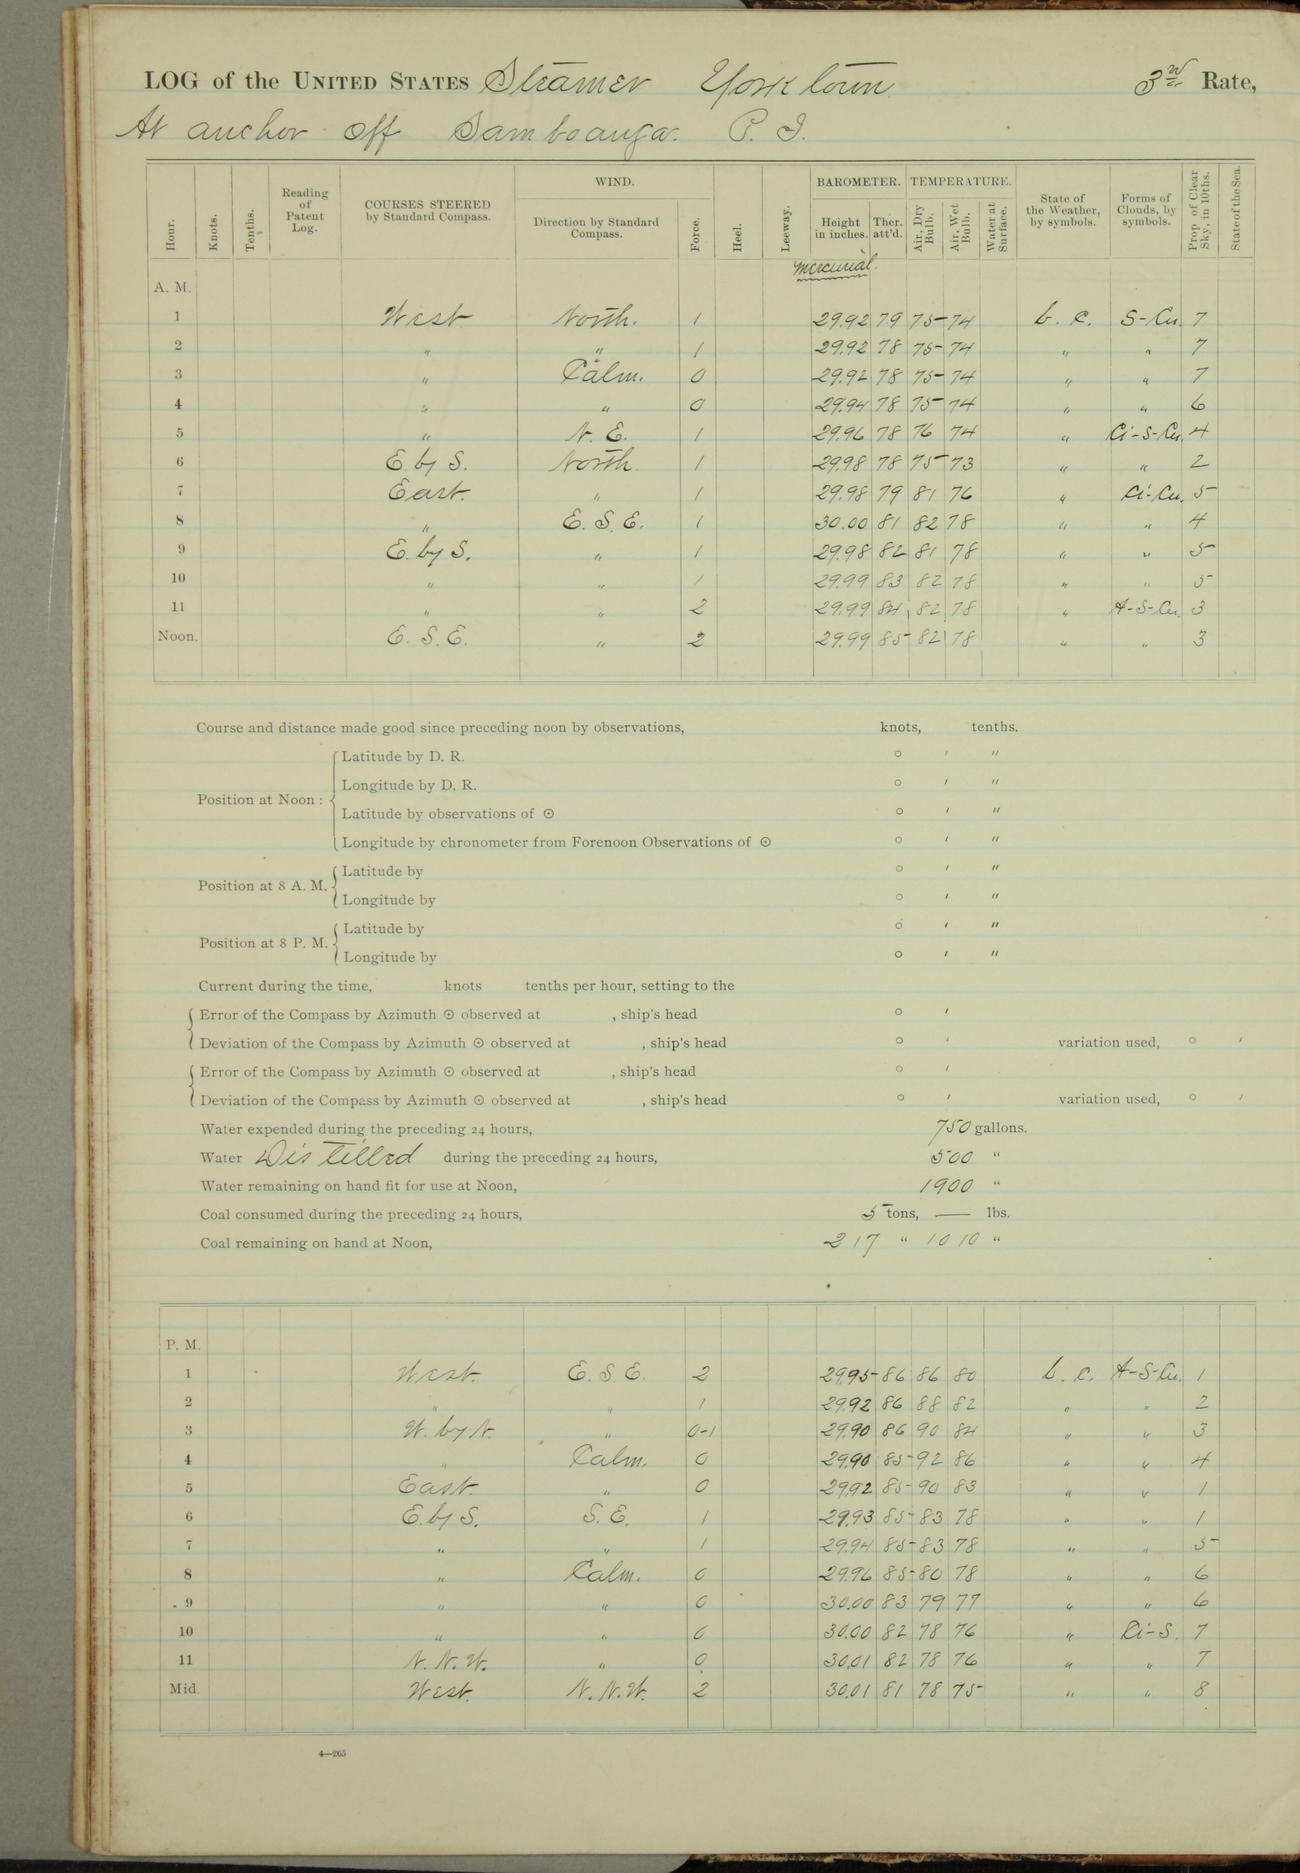 LOG of the UNITED STATES Steamer Yorktown 3rd Rate,
At anchor off Samboanga. P. I.
Hour. Knots. Tenths. Reading of Patent Log. COURSES STEERED by Standard Compass. WIND. Direction by Standard Compass. Force. Heel. Leeway. BAROMETER. Height in inches. Ther. att'd. TEMPERATURE. Air, Dry Bulb. Air, Wet Bulb. Water at Surface. State of the Weather, by symbols. Forms of Clouds, by symbols. Prop. of Clear Sky, in 10ths. State of the Sea.
mercurial.
A. M.
1 West North. 1 29.92 79 75 74 b. c. S-Cu. 7
2 " " 1 29.92 78 75 74 " " 7
3 " Calm. 0 29.92 78 75 74 " " 7
4 " " 0 29.94 78 75 74 " " 6
5 " N. E. 1 29.96 78 76 74 " Ci-S-Cu. 4
6 E. by S. North 1 29.98 78 75 73 " " 2
7 East. " 1 29.98 79 81 76 " Ci-Cu. 5
8 " E. S. E. 1 30.00 81 82 78 " " 4
9 E. by S. " 1 29.98 82 81 78 " " 5
10 " " 1 29.99 83 82 78 " " 5
11 " " 2 29.99 84 82 78 " A-S-Cu. 3
Noon. E. S. E. " 2 29.99 85 82 78 " " 3
Course and distance made good since preceding noon by observations, knots, tenths.
Position at Noon : Latitude by D. R. ° ′ ″
Longitude by D. R. ° ′ ″
Latitude by observations of ☉ ° ′ ″
Longitude by chronometer from Forenoon Observations of ☉ ° ′ ″
Position at 8 A. M. Latitude by ° ′ ″
Longitude by ° ′ ″
Position at 8 P. M. Latitude by ° ′ ″
Longitude by ° ′ ″
Current during the time, knots tenths per hour, setting to the
Error of the Compass by Azimuth ☉ observed at , ship's head ° ′
Deviation of the Compass by Azimuth ☉ observed at , ship's head ° ′ variation used, ° ′
Error of the Compass by Azimuth ☉ observed at , ship's head ° ′
Deviation of the Compass by Azimuth ☉ observed at , ship's head ° ′ variation used, ° ′
Water expended during the preceding 24 hours, 750 gallons.
Water Distilled during the preceding 24 hours, 500 "
Water remaining on hand fit for use at Noon, 1900 "
Coal consumed during the preceding 24 hours, 5 tons, — lbs.
Coal remaining on hand at Noon, 217 " 1010 "
P. M.
1 West. E. S. E. 2 29.95 86 86 80 b. c. A-S-Cu. 1
2 " " 1 29.92 86 88 82 " " 2
3 W. by N. " 0-1 29.90 86 90 84 " " 3
4 " Calm. 0 29.90 85 92 86 " " 4
5 East. " 0 29.92 85 90 83 " " 1
6 E. by S. S. E. 1 29.93 85 83 78 " " 1
7 " " 1 29.94 85 83 78 " " 5
8 " Calm. 0 29.96 85 80 78 " " 6
9 " " 0 30.00 83 79 77 " " 6
10 " " 0 30.00 82 78 76 " Ci-S. 7
11 N. N. W. " 0 30.01 82 78 76 " " 7
Mid. West. N. N. W. 2 30.01 81 78 75 " " 8
4—265